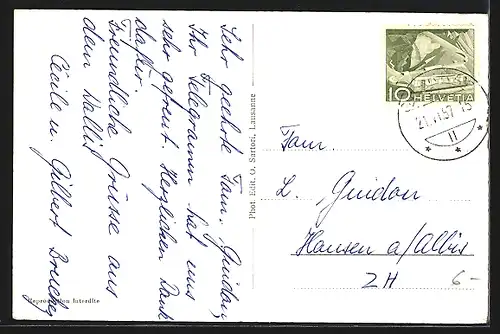 Sehr geehrte Fam. Guidon,
Ihr Telegramm hat uns
sehr gefreut. Herzlichen Dank
dafür.
Freundliche Grüsse aus
dem Wallis
Cécile u. Gilbert
Reproduction Interdite
Phot. Edit. O. Sartori, Lausanne
10 HELVETIA
Fam.
L. Guidon
Hausen a/Albis
ZH
6-